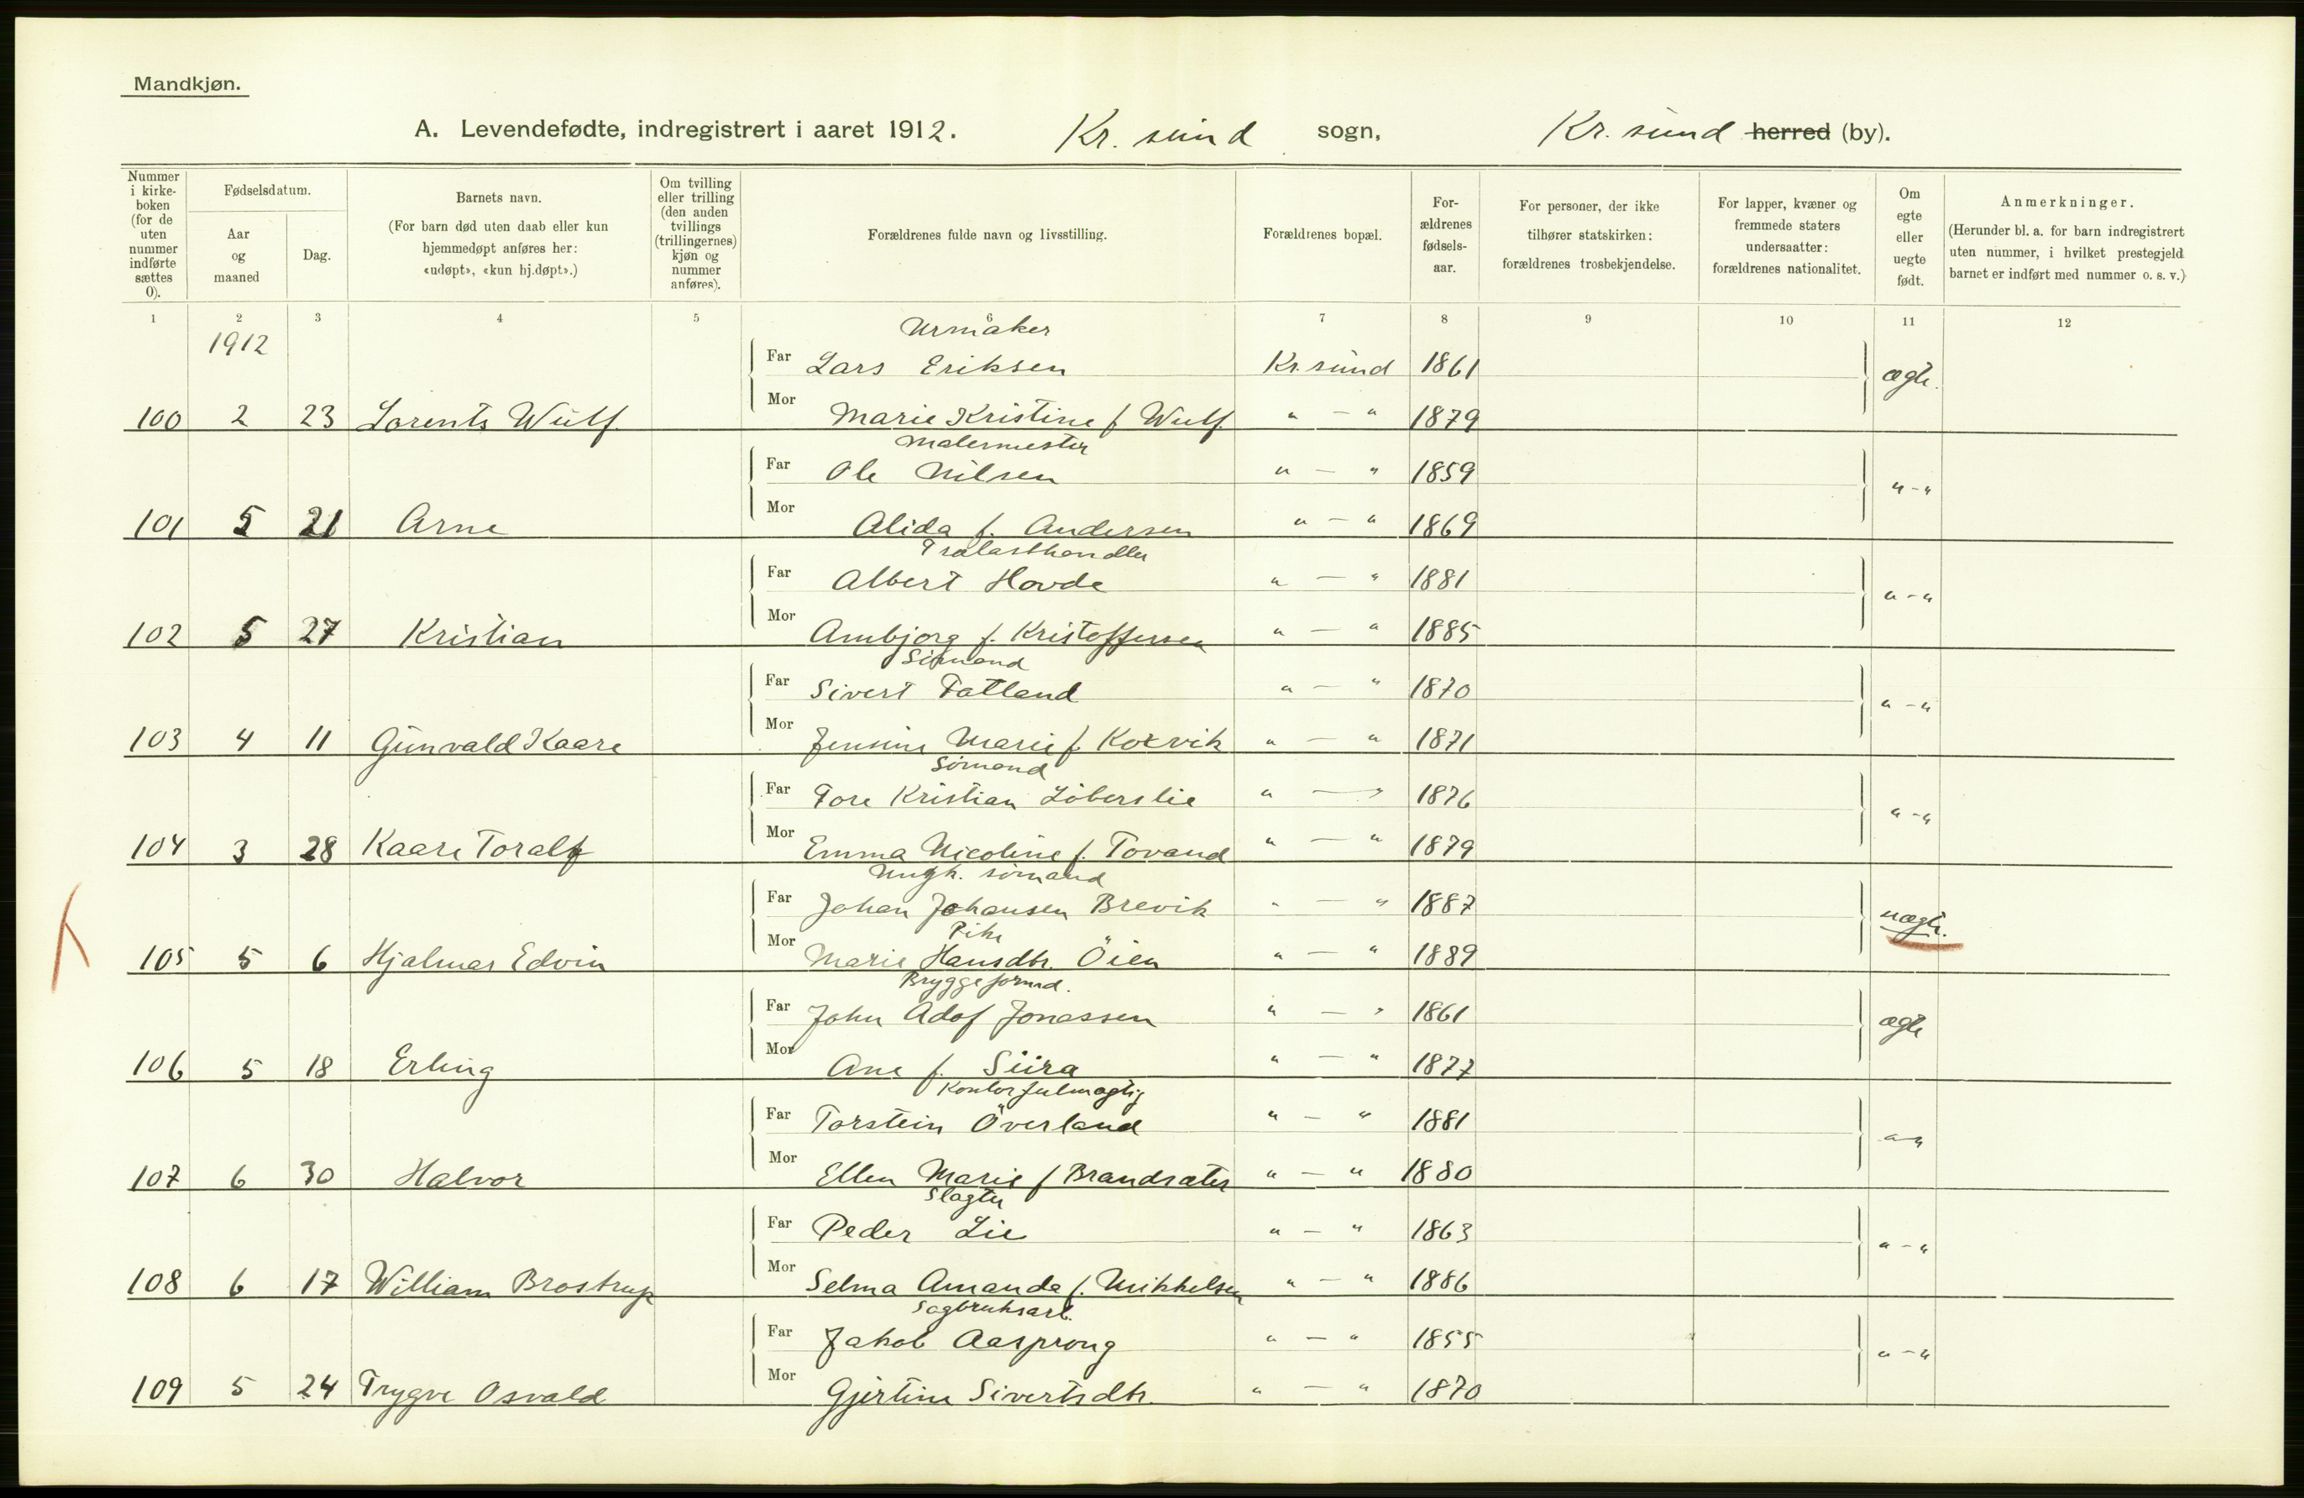 Mandkjøn.
A. Levendefødte, indregistrert i aaret 1912. Kr. sund sogn, Kr. sund herred (by).
Nummer i kirkeboken (for de uten nummer indførte sættes 0).
Fødselsdatum.
Aar og maaned
Dag.
Barnets navn.
(For barn død uten daab eller kun hjemmedøpt anføres her: «udøpt», «kun hj.døpt».)
Om tvilling eller trilling (den anden tvillings (trillingernes) kjøn og nummer anføres).
Forældrenes fulde navn og livsstilling.
Forældrenes bopæl.
Forældrenes fødselsaar.
For personer, der ikke tilhører statskirken: forældrenes trosbekjendelse.
For lapper, kvæner og fremmede staters undersaatter: forældrenes nationalitet.
Om egte eller uegte født.
Anmerkninger.
(Herunder bl. a. for barn indregistrert uten nummer, i hvilket prestegjeld barnet er indført med nummer o. s. v.)
1 2 3 4 5 6 7 8 9 10 11 12
1912
Urmåker
Far Lars Eriksen Kr. sund 1861 ægte.
100 2 23 Lorents Wulf Mor Marie Kristine f Wulf " — " 1879
Malermester
Far Ole Nilsen " — " 1859 " - "
101 5 21 Arne Mor Alida f. Andersen " — " 1869
Trælasthandler
Far Albert Hovde " — " 1881 " - "
102 5 27 Kristian Mor Ambjorg f. Kristoffersen " — " 1885
Sömand
Far Sivert Tatland " — " 1870 " - "
103 4 11 Gunvald Kaare Mor Jensine Marie f. Korvik " — " 1871
Sömand
Far Tore Kristian Löberslie " — " 1876 " - "
104 3 28 Kaare Toralf Mor Emma Nicoline f. Tovand " — " 1879
Ungk. sömand
Far Johan Johansen Brevik " — " 1887 uægte.
K
Pike
105 5 6 Hjalmar Edvin Mor Marie Hansdtr. Öien " — " 1889
Bryggeformd.
Far John Adof Jonassen " — " 1861 ægte
106 5 18 Erling Mor Ane f. Siira " — " 1877
Kontorfulmægtig
Far Torstein Överland " — " 1881 " - "
107 6 30 Halvor Mor Ellen Marie f Brandsæter " — " 1880
Slagter
Far Peder Lie " — " 1863 " - "
108 6 17 William Brostrup Mor Selma Amanda f. Mikkelsen " — " 1886
Sagbruksarb.
Far Jakob Aasprong " — " 1855 " - "
109 5 24 Trygve Osvald Mor Gjertine Sivertsdtr. " — " 1870